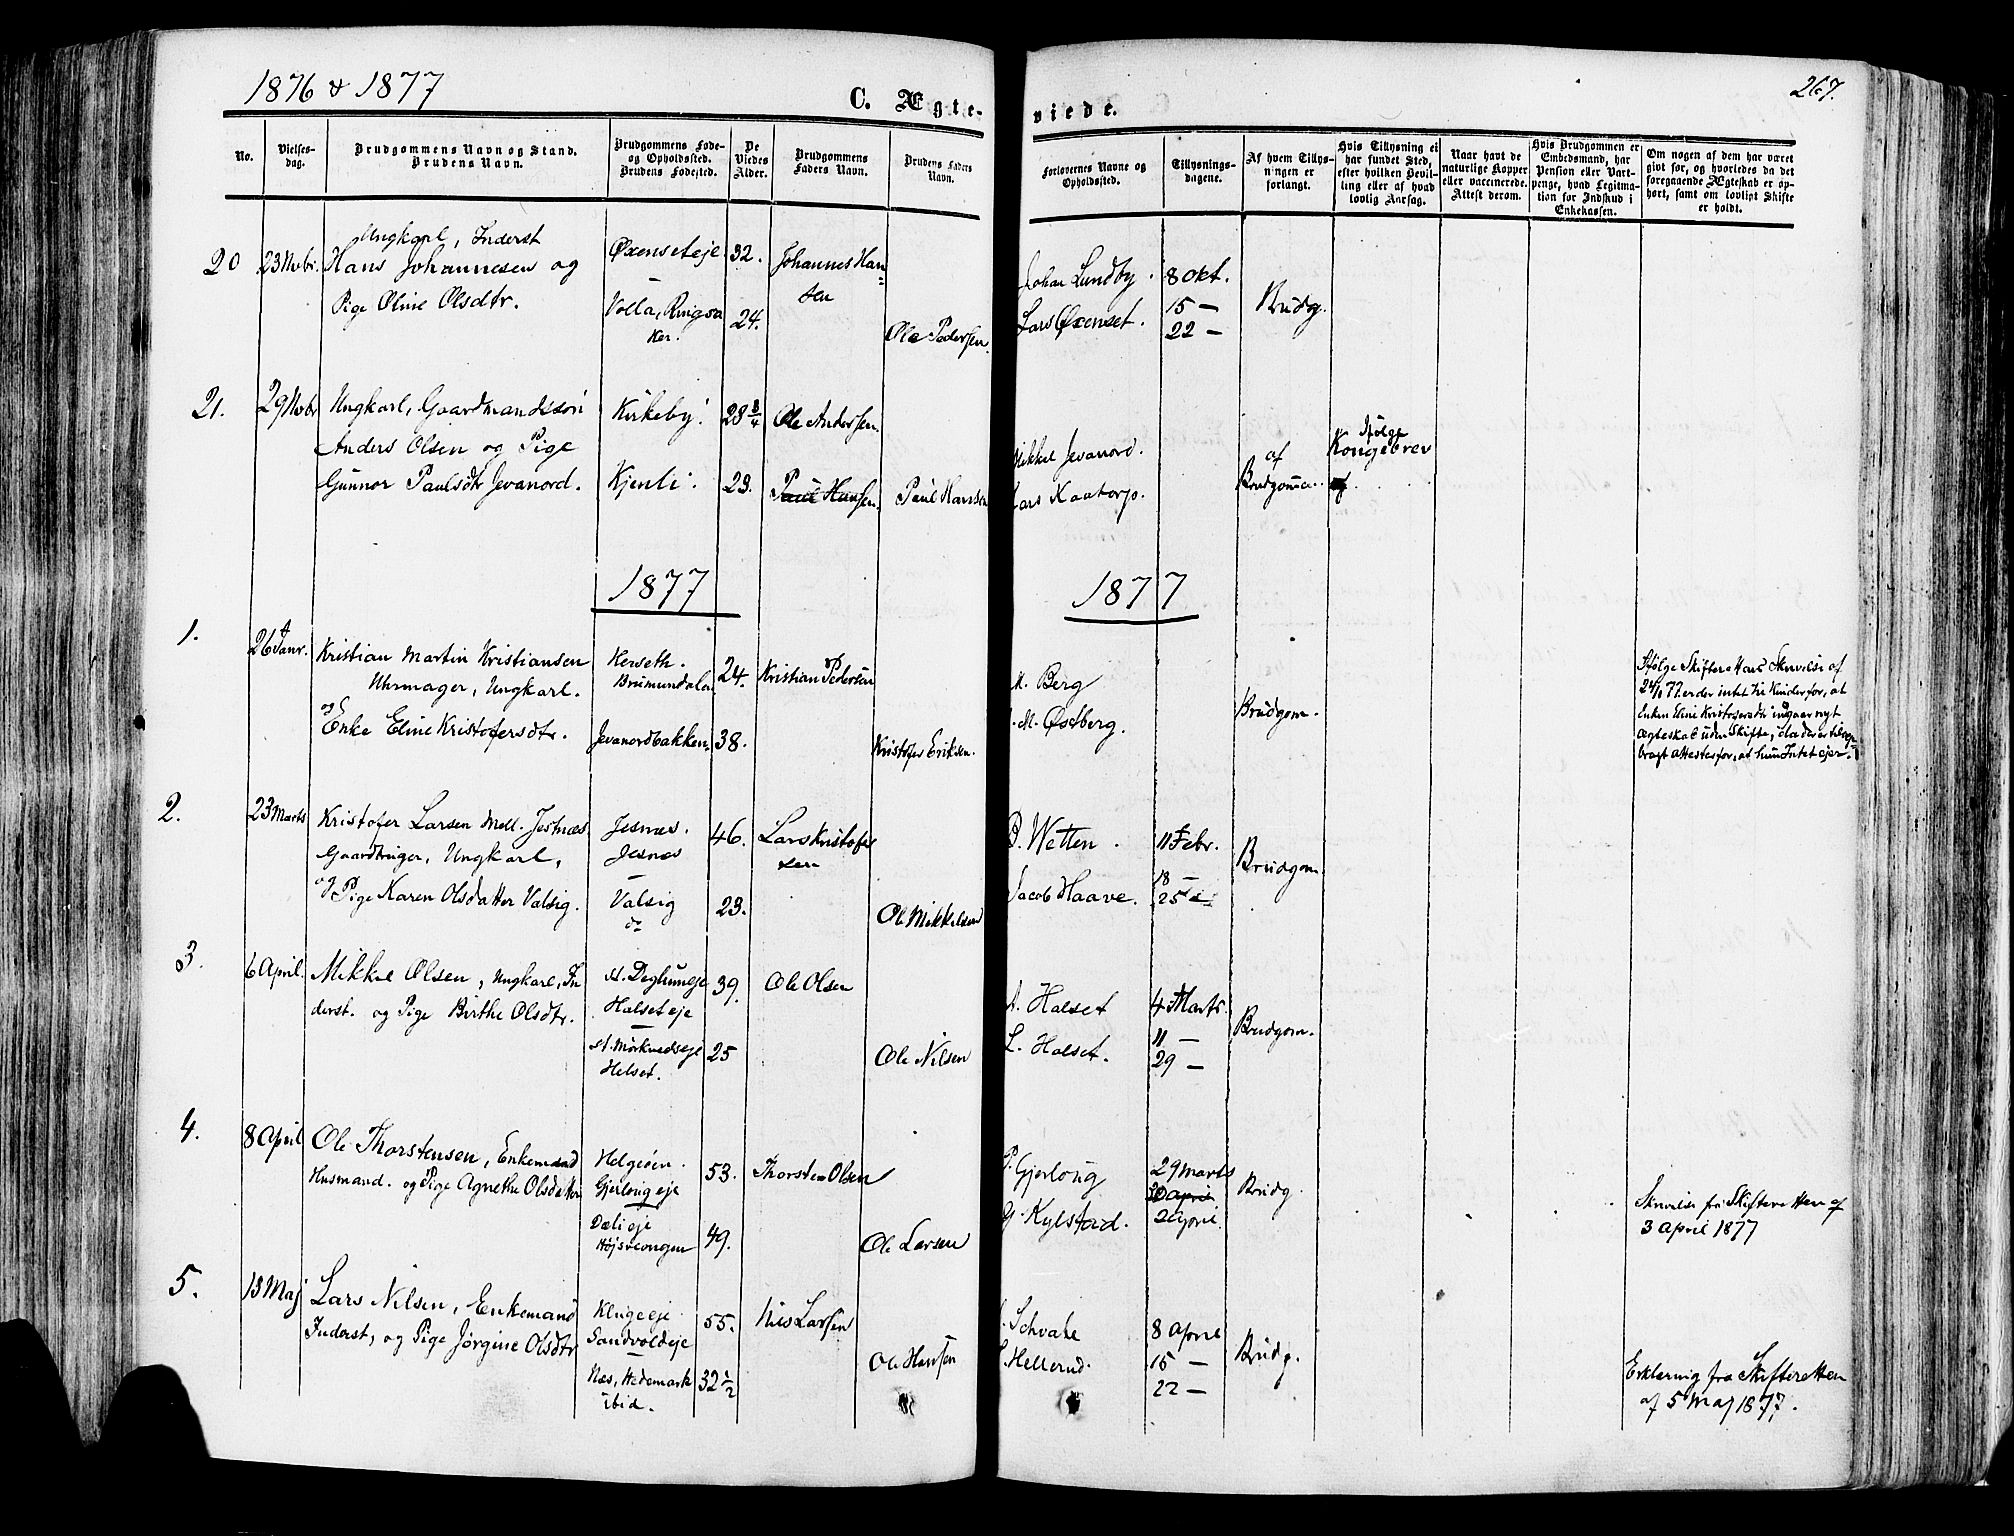 1876 & 1877
C. Ægte-
viede.
267.
No.
Vielses-
dag.
Brudgommens Navn og Stand.
Brudens Navn.
Brudgommens Føde-
og Opholdssted.
Brudens Fødested.
De
Viedes
Alder.
Brudgommens
Faders Navn.
Brudens Faders
Navn.
Forlovernes Navne og
Opholdssted.
Tillysnings-
dagene.
Af hvem Tillys-
ningen er
forlangt.
Hvis Tillysning ei
har fundet Sted,
efter hvilken Bevil-
ling eller af hvad
lovlig Aarsag.
Naar havt de
naturlige Kopper
eller vaccinerede.
Attest derom.
Hvis Brudgommen er
Embedsmand, har
Pension eller Vart-
penge, hvad Legitima-
tion for Indskud i
Enkekassen.
Om nogen af dem har været
givt før, og hvorledes da det
foregaaende Ægteskab er op-
hørt, samt om lovligt Skifte
er holdt.
20
23 Novbr.
Ungkarl, Inderst
Hans Johannesen og
Pige Oline Olsdtr.
Øxenseteje
Volla, Ringsa
ker.
32.
24.
Johannes Han-
sen
Ole Pedersen.
Johan Lundby.
Lars Øxenset.
8 Okt.
15 —
22 —
Brudg.
21.
29 Novbr
Ungkarl, Gaardmandssøn
Anders Olsen og Pige
Gunnor Paulsdtr Jevanord.
Kirkeby.
Kjenli.
28 3/4
23.
Ole Andersen.
Paul Hansen.
Paul Hansen
Mikkel Jevanord.
Lars Kaatorp.
af
Brudgommen.
Ifølge
Kongebrev
1877
1877
1.
26 Janr.
Kristian Martin Kristiansen
Uhrmager, Ungkarl.
og
Enke Eline Kristofersdtr.
Herseth.
Brumundalen
Jevanordbakken
24.
38.
Kristian Pedersen
Kristofer Eriksen.
M. Berg
M. Østberg.
Brudgom.
Ifølge Skifterettens Skrivelse af
24/1 77 er der intet til Hinder for, at
Enken Eline Kristofersdtr indgaar nyt
Ægteskab uden Skifte, da der er tilve-
bragt Attester for, at hun Intet ejer.
2.
23 Marts
Kristofer Larsen Mell. Jesnæs
Gaardbruger, Ungkarl,
og Pige Karen Olsdatter Valsig.
Jesnæs.
Jesnæs
Valsig
do
46.
23.
Lars Kristofer
sen
Ole Mikkelsen
B. Wetten.
Jacob Haave.
11 Febr.
18 —
25 —
Brudgom.
3.
6 April.
Mikkel Olsen, Ungkarl, In
derst. og Pige Birthe Olsdtr.
N. Deglumeje
Halseteje
N. Mørkvedseje
Helset.
39.
25
Ole Olsen
Ole Nilsen
A. Halset
L. Halset.
4 Marts.
11 —
29 —
Brudgom.
4.
8 April
Ole Thorstensen, Enkemand
Husmand. og Pige Agnethe Olsdatter
Helgeøen.
Gjerlougeje
Dælieje
53.
49.
Thorsten Olsen
Ole Larsen
P. Gjerloug
G. Kylstad.
29 Marts
2 April.
Brudg.
Skrivelse fra Skifteretten af
3 April 1877
5.
13 Maj
Lars Nilsen, Enkemand
Inderst, og Pige Jørgine Olsdtr
Klugeeje
Sandvoldeje
Næs, Hedemark
ibid.
55.
32 1/2
Nils Larsen
Ole Hansen
Schvabe
Hellerud.
8 April
15 —
22 —
Brudg.
Erklæring fra Skifteretten
af 5 Maj 1877.